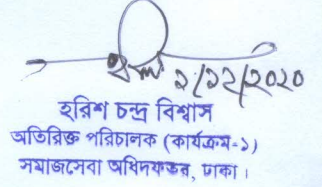 ২/১২/২০২০
হরিশ চন্দ্র বিশ্বাস
অতিরিক্ত পরিচালক (কার্যক্রম-১)
সমাজসেবা অধিদফতর, ঢাকা।